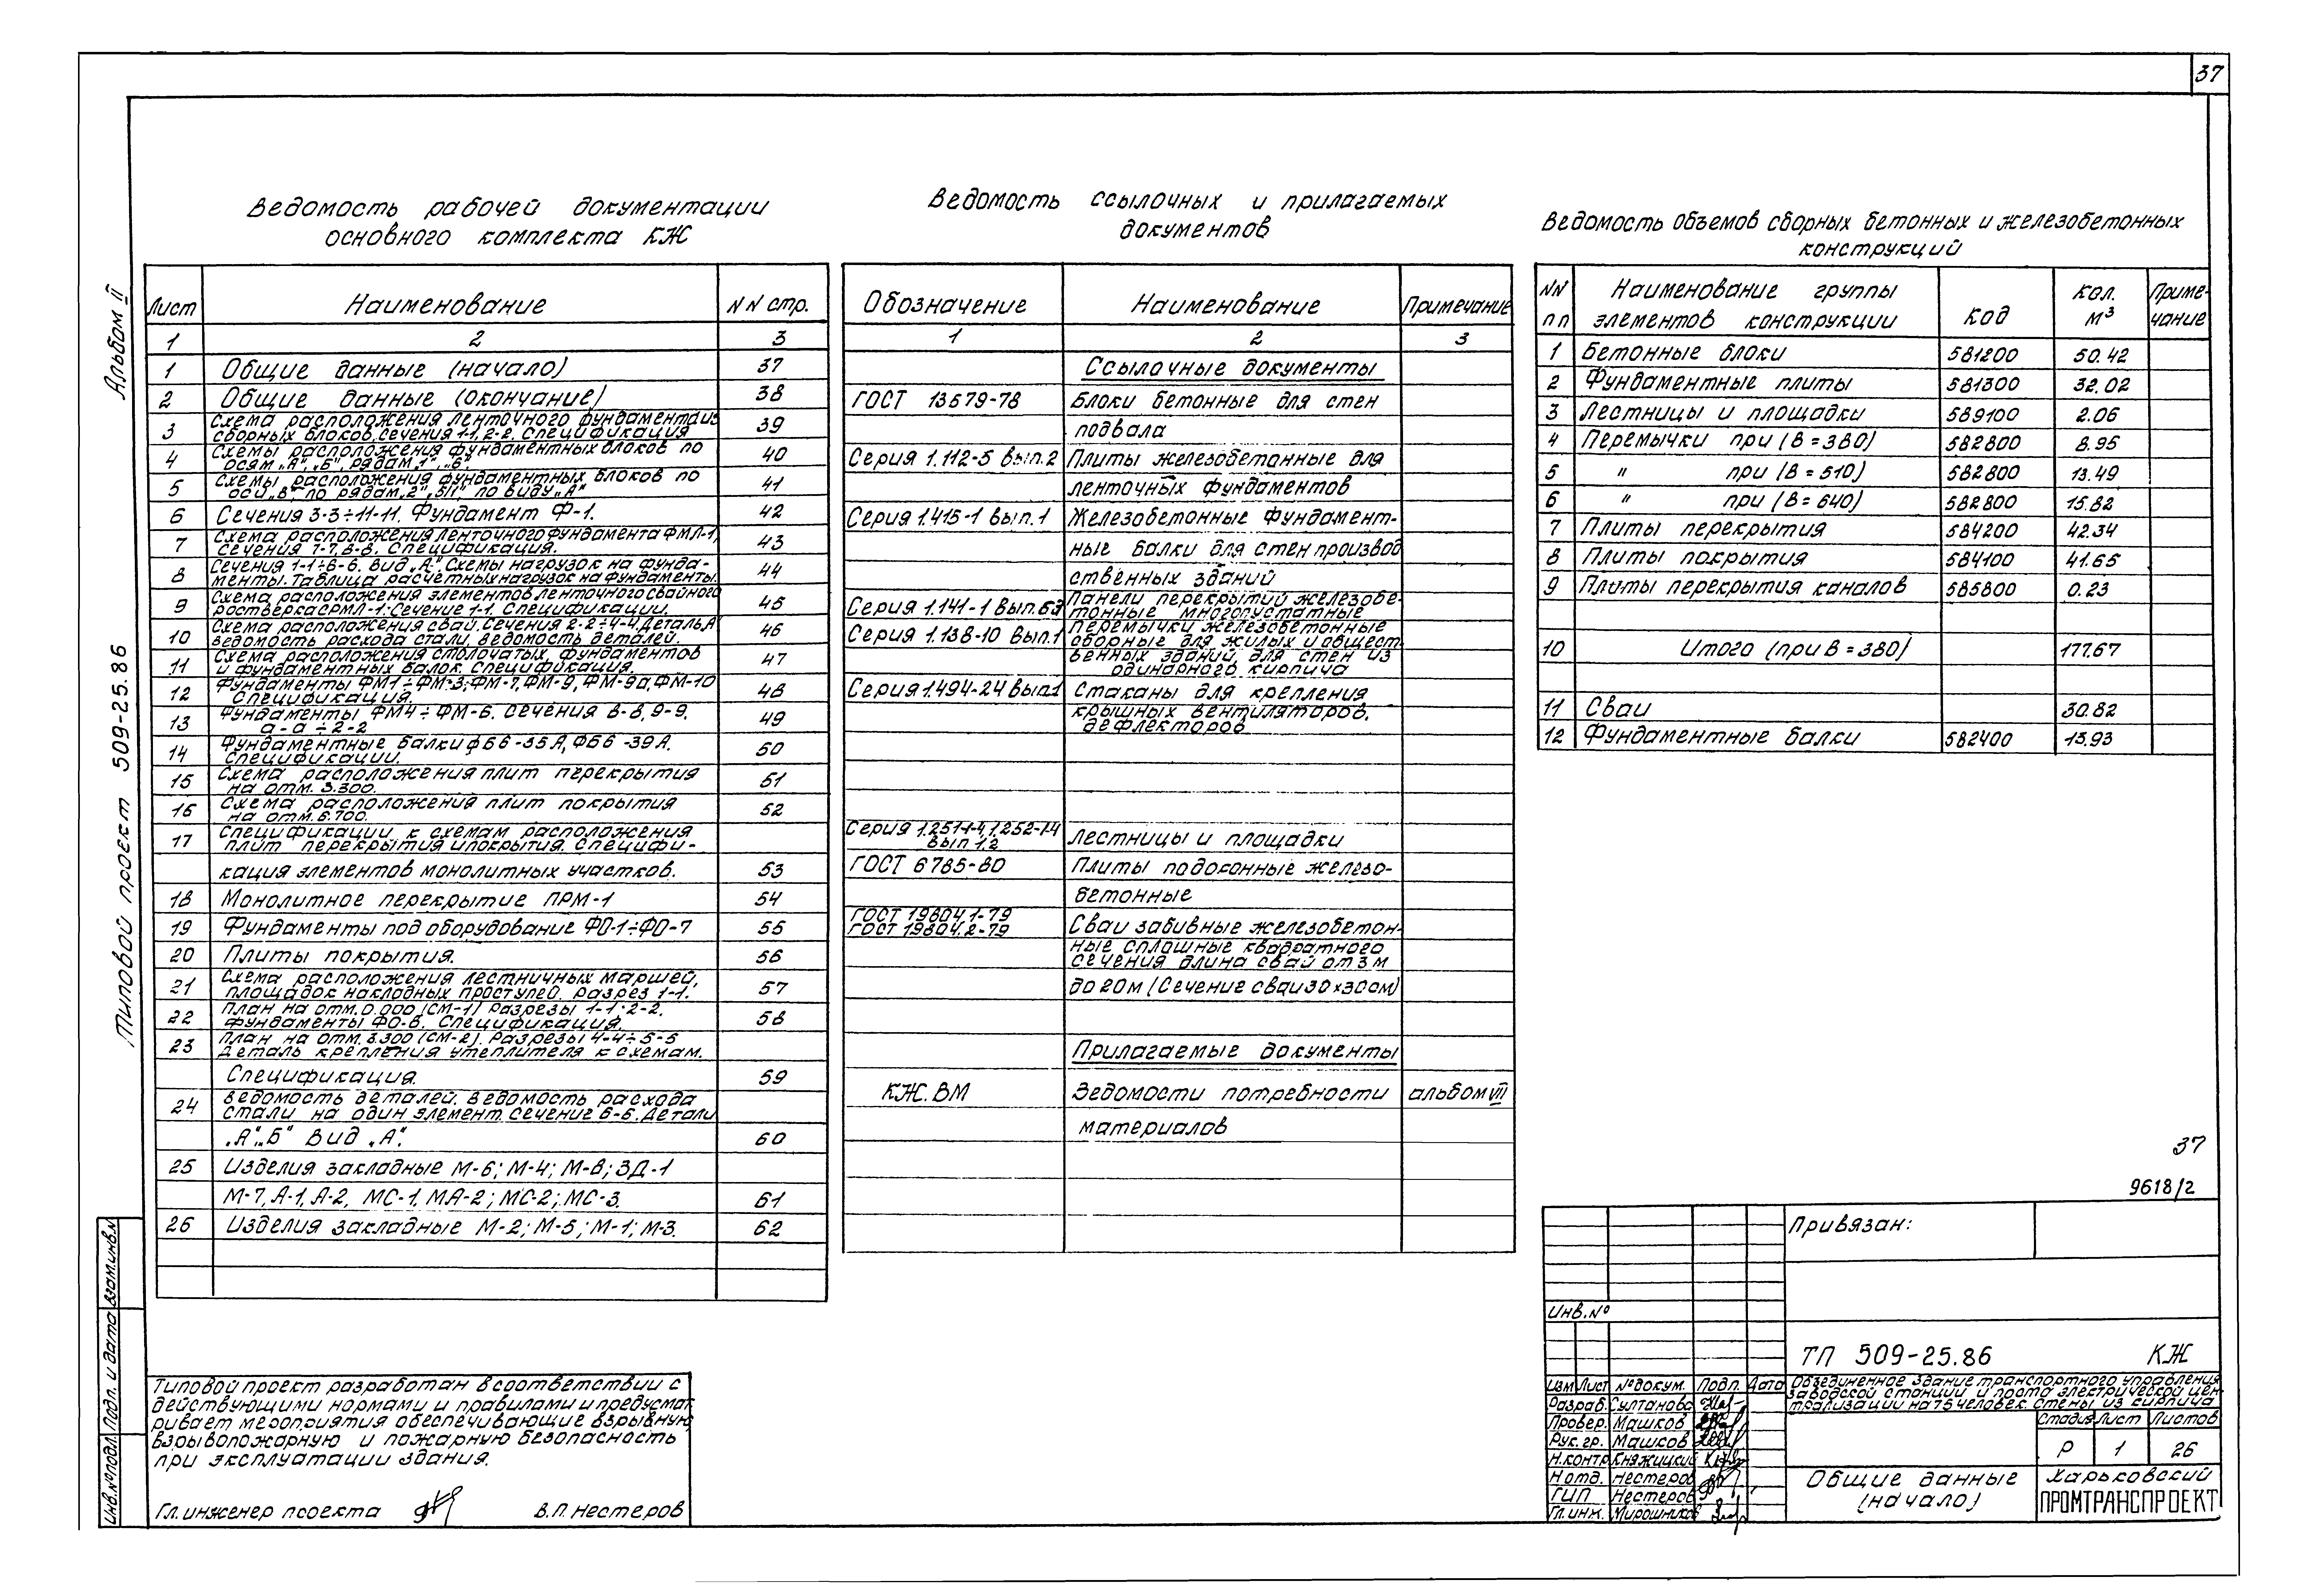 37
Альбом II
Типовой проект 509-25.86
Ведомость рабочей документации
основного комплекта КЖ
Лист Наименование NN стр.
1 2 3
1 Общие данные (начало) 37
2 Общие данные (окончание) 38
3 Схема расположения ленточного фундамента из
сборных блоков. Сечения 1-1, 2-2. Спецификация 39
4 Схемы расположения фундаментных блоков по
осям „А", „Б", рядам „1", „6". 40
5 Схемы расположения фундаментных блоков по
оси „В", по рядам „2", 5/1" по виду „А" 41
6 Сечения 3-3÷11-11. Фундамент Ф-1. 42
7 Схема расположения ленточного фундамента ФМЛ-1,
сечения 7-7, 8-8. Спецификация. 43
8 Сечения 1-1÷6-6. Вид „А". Схемы нагрузок на фунда-
менты. Таблица расчетных нагрузок на фундаменты. 44
9 Схема расположения элементов ленточного свайного
ростверка СРМЛ-1. Сечение 1-1. Спецификации. 45
10 Схема расположения свай. Сечения 2-2÷4-4. Деталь А
Ведомость расхода стали. Ведомость деталей. 46
11 Схема расположения столбчатых фундаментов
и фундаментных балок. Спецификация. 47
12 Фундаменты ФМ1÷ФМ-3; ФМ-7, ФМ-9, ФМ-9а, ФМ-10
Спецификация. 48
13 Фундаменты ФМ4÷ФМ-6. Сечения 8-8, 9-9.
а-а÷2-2 49
14 Фундаментные балки ФБ6-35А, ФБ6-39А.
Спецификации. 50
15 Схема расположения плит перекрытия
на отм. 3.300. 51
16 Схема расположения плит покрытия
на отм. 6.700. 52
17 Спецификации к схемам расположения
плит перекрытия и покрытия. Специфи-
кация элементов монолитных участков. 53
18 Монолитное перекрытие ПРМ-1 54
19 Фундаменты под оборудование ФО-1÷ФО-7 55
20 Плиты покрытия. 56
21 Схема расположения лестничных маршей,
площадок накладных проступей. Разрез 1-1. 57
22 План на отм. 0.000 (СМ-1) Разрезы 1-1; 2-2.
Фундаменты ФО-8. Спецификация. 58
23 План на отм. 3.300 (СМ-2). Разрезы 4-4÷5-5
Деталь крепления утеплителя к схемам.
Спецификация. 59
24 Ведомость деталей. Ведомость расхода
стали на один элемент. Сечение 6-6. Детали
„А", „Б" Вид „А". 60
25 Изделия закладные М-6; М-4; М-8; ЗД-1
М-7, А-1, А-2, МС-1, МА-2; МС-2; МС-3. 61
26 Изделия закладные М-2; М-5; М-1; М-3. 62
Ведомость ссылочных и прилагаемых
документов
Обозначение Наименование Примечание
1 2 3
Ссылочные документы
ГОСТ 13579-78 Блоки бетонные для стен
подвала
Серия 1.112-5 вып.2 Плиты железобетонные для
ленточных фундаментов
Серия 1.415-1 вып.1 Железобетонные фундамент-
ные балки для стен производ
ственных зданий
Серия 1.141-1 вып.63 Панели перекрытий железобе-
тонные многопустатные
Серия 1.138-10 вып.1 Перемычки железобетонные
сборные для жилых и общест-
венных зданий для стен из
одинарного кирпича
Серия 1.494-24 вып.1 Стаканы для крепления
крышных вентиляторов,
дефлекторов
Серия 1.251-1-4, 1.252-1-4
вып 1,2 Лестницы и площадки
ГОСТ 6785-80 Плиты подоконные железо-
бетонные
ГОСТ 19804.1-79
ГОСТ 19804.2-79 Сваи забивные железобетон-
ные сплошные квадратного
сечения длина свай от 3 м
до 20м (Сечение сваи 30х30см)
Прилагаемые документы
КЖ.ВМ Ведомости потребности альбом VII
материалов
Ведомость объемов сборных бетонных и железобетонных
конструкций
NN пп Наименование группы элементов конструкции Код Кол. м³ Приме-чание
1 Бетонные блоки 581200 50.42
2 Фундаментные плиты 581300 32.02
3 Лестницы и площадки 589100 2.06
4 Перемычки при (В=380) 582800 8.95
5 " при (В=510) 582800 13.49
6 " при (В=640) 582800 15.82
7 Плиты перекрытия 584200 42.34
8 Плиты покрытия 584100 41.65
9 Плиты перекрытия каналов 585800 0.23
10 Итого (при В=380) 177.67
11 Сваи 30.82
12 Фундаментные балки 582400 13.93
37
9618/2
Привязан:
Инв.№
ТП 509-25.86 КЖ
Изм Лист № докум. Подп. Дата
Разраб. Султанова
Провер. Машков
Рук. гр. Машков
Н.контр Княжицкий
Н отд. Нестеров
ГИП Нестеров
Гл.инж. Мирошников
Объединенное здание транспортного управления
заводской станции и поста электрической цен-
трализации на 75 человек. Стены из кирпича
Стадия Лист Листов
Р 1 26
Общие данные
(начало)
Харьковский
ПРОМТРАНСПРОЕКТ
Типовой проект разработан в соответствии с
действующими нормами и правилами и предусмат
ривает мероприятия обеспечивающие взрывную,
взрывопожарную и пожарную безопасность
при эксплуатации здания.
Гл. инженер проекта В.П. Нестеров
Инв.№подл. Подп. и дата Взам.инв.№